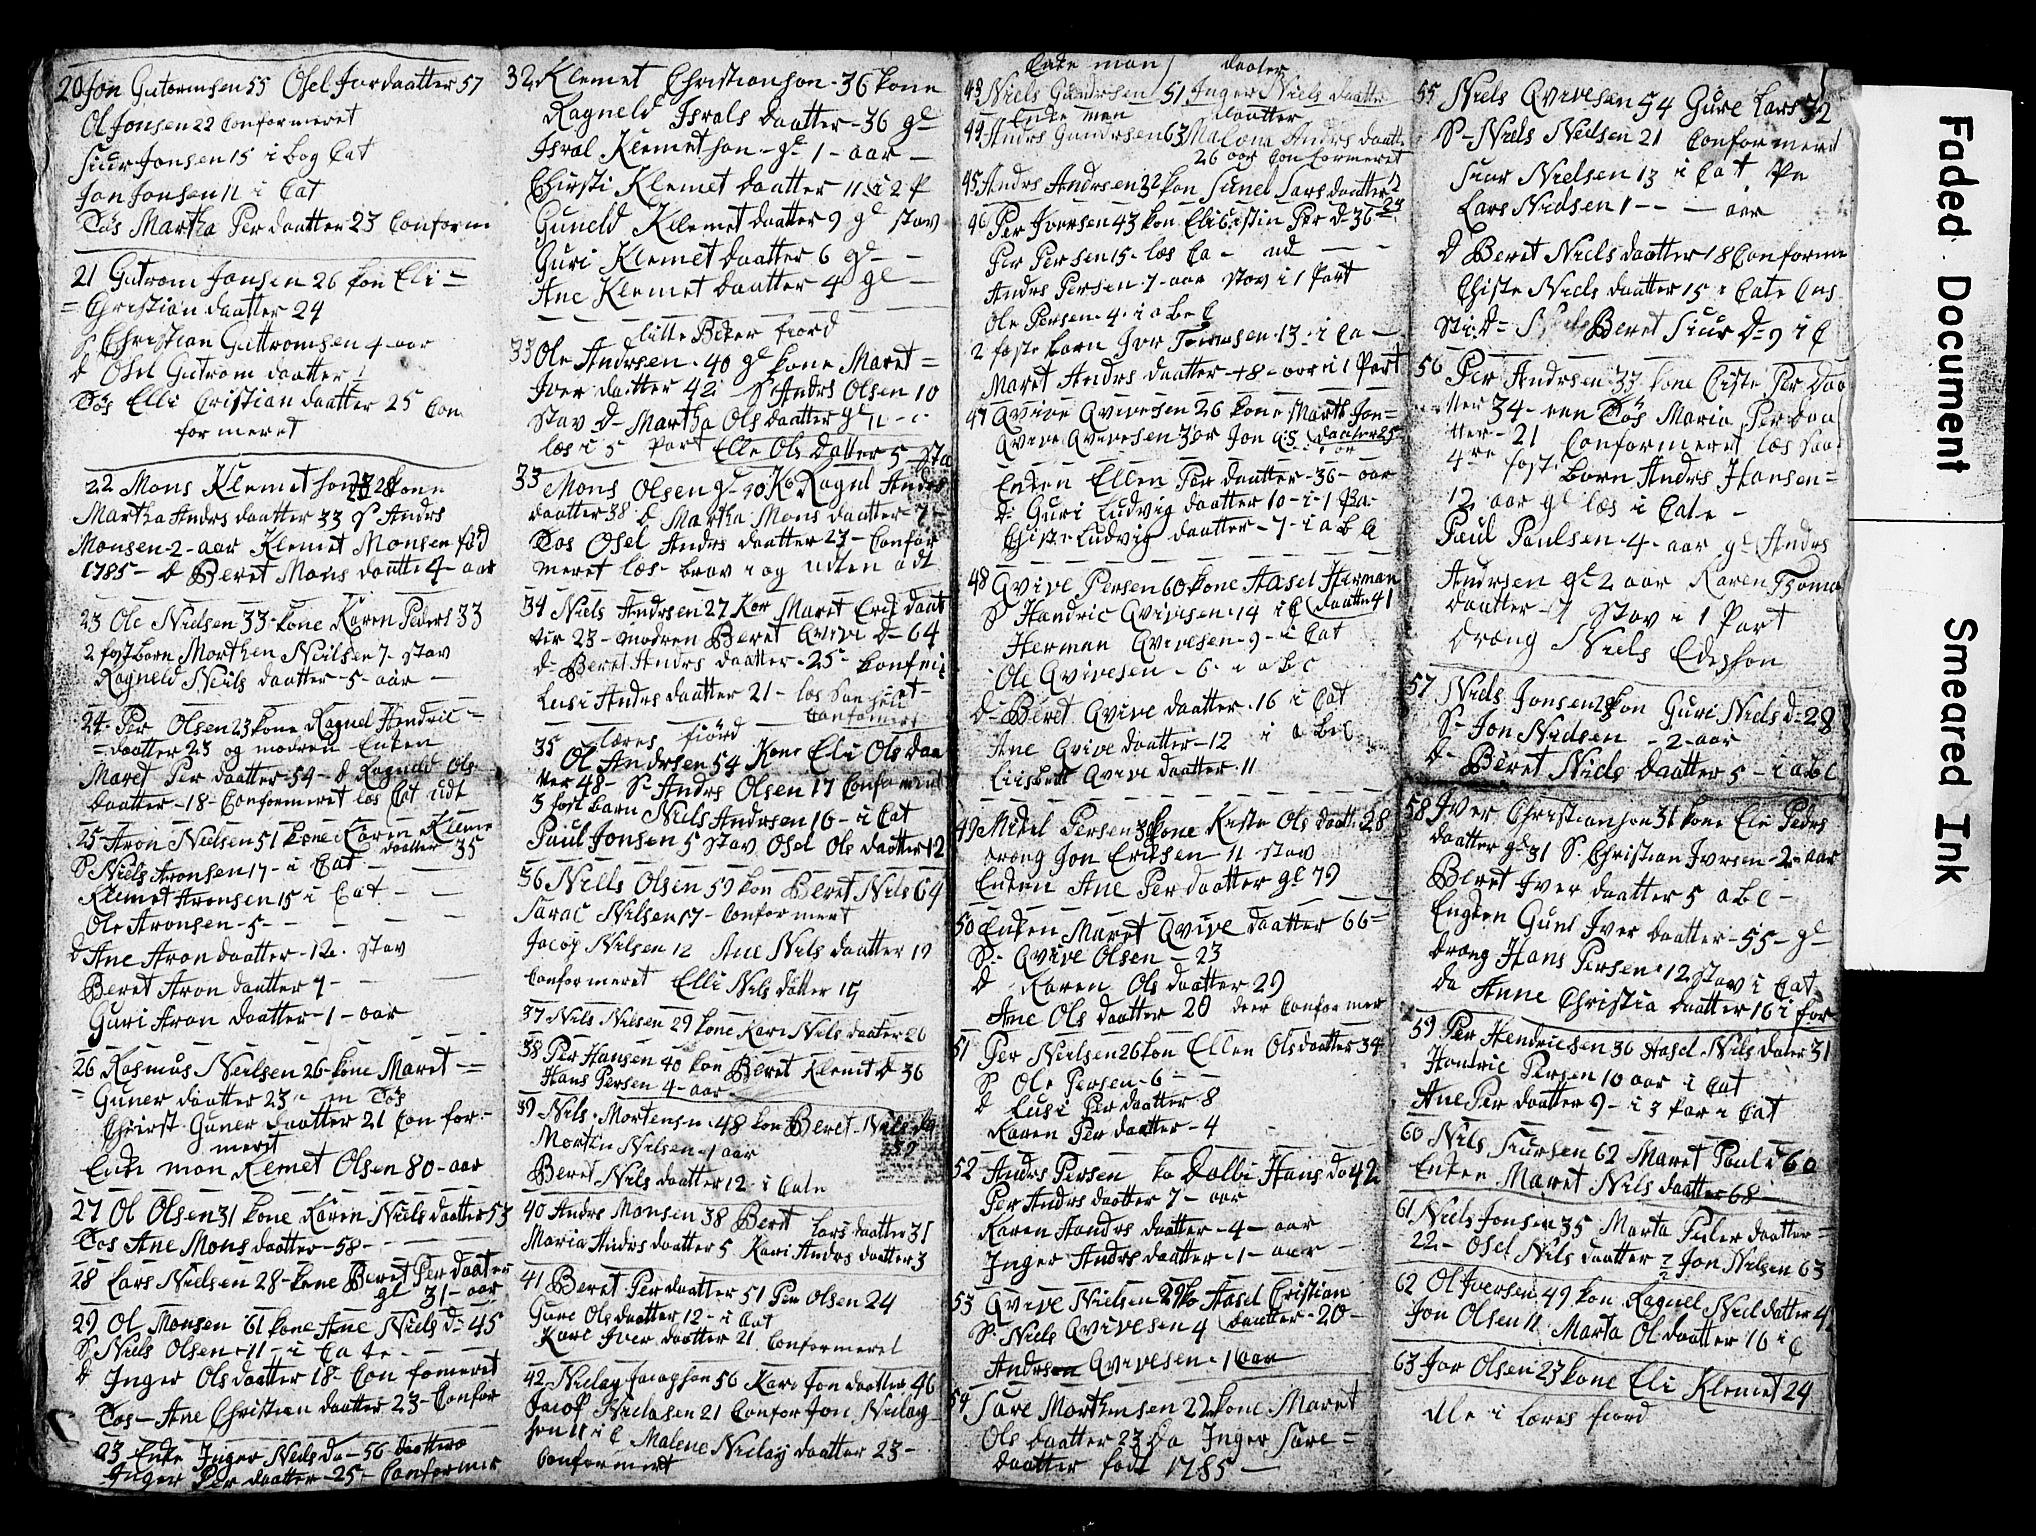 20 Jon Gutormsen 55 Osel Jordaatter 57
Ol Jonsen 22 Conformeret
Siur Jonsen 15 i bog Cat
Jon Jonsen 11 i Cat
Tös Martha Per daatter 23 Conform
21 Gutrom Jonsen 26 kon Eli =
= Christian daatter 24
S Christian Guttromsen 4 aar
d Osel Gutrom daatter 1
Tös Elli Cristian daatter 25 Con
for meret
22 Mons Klemet son 28 kone
Martha Andrs daatter 33 S Andrs
Monsen - 2 - aar Klemet Monsen fød
1785 - d Beret Mons daatte 4 - aar
23 Ole Nielsen 33 - kone Karen Peders 33
2 fost born Morthen Nielsen 7 - stav
Ragneld Niels daatter - 5 - aar -
24 - Per Olsen 23 kone Ragnel Hendric =
= daatter 23 og modren Enken
Maret Per daatter - 54 - d Ragneld Ols
daatter - 18 - Conformeret los Cat udt
25 - Aron Nielsen 51 kone Karin Kleme
daatter 35
S Niels Aronsen 17 - i Cat -
Klemet Aronsen 15 i Cat - -
Ole Aronsen - 5 - - -
d Ane Aron daatter - 12 . stav
Beret Aron daatter 7 - -
Guri Aron daatter - 1 - aar
26 Rasmus Neilsen 26 - kone Maret =
= Guner daatter 23 - en Tös
Chirst Guner daatter 21 Con for -
meret
Enke man Kemet Olsen 80 - aar
27 Ol Olsen 31 kone Karen Niels daatter 53
Tos Ane Mons daatter - 58 -
28 Lars Nielsen 28 - kone Beret Per daater
gl 31 - aar
29 Ol Monsen 61 kone Ane Niels d - 45
S Niels Olsen - 11 - i Cate -
d Inger Ols daatter 18 - Con fomeret
Tos - Ane Christian daatter 23 - Confor
23 Enke Inger Niels da - 56 daattera
Inger Per daatter - 25 - Conformer
32 Klemet Christianson - 36 kone
Ragneld Israls daatter - 36 gl
Isral Klemetson - gl 1 - aar -
Chirsti Klemet daatter 11 i 2 P
Guneld Klemet daatter 9 gl stav
Guri Klemet daatter 6 gl -
Ane Klemet daatter 4 gl -
litte Beker fiord
33 Ole Andrsen - 40 gl kone Maret =
Iver daatter 42 S Andrs Olsen 10
stav d - Martha Ols daatter gl 11 - i
los i 5 Part Elle Ols datter 5 Sta
33 Mons Olsen gl - 40 Ko Ragnl Andrs
daatter 38 d Martha Mons daatter 7
Tos Osel Andrs daatter 23 - Confor
meret los - brav i og udten adt
34 Niels Andrsen 27 Kor Maret Erik daat
ter 23 - modren Beret Qvive d - 64
d - Beret Andrs daatter - 25 - konfrei
Lusi Andrs daatter 21 - los
Conformert
35 læres fiörd
Ol Andrsen 54 Kone Eli Ols daa
tter 48 - S - Andrs Olsen 17 Conformert
3 fost barn Niels Andrsen 16 - i Cat
Paul Jonsen 5 stav Osel Ols daatter 12
36 Niells Olsen 59 kon Beret Nils 64
Sarac Nilsen 17 - Conformert
Jacop Nilsen 12 Ane Nils daatter 19
Conformeret Elli Nils datter 15
37 Nils Nilsen 29 kone Kari Nils daatter 26
38 Per Hansen 40 kon Beret Klemt d 36
Hans Persen 4 - aar
39 Nils - Mortensen 48 kon Beret Nils da
37
Morten Nilsen - 1 aar
Beret Nils daatter 12 - i Cate
40 Andrs Monsen 38 Beret Lars daatter 31
Maria Andrs daatter 5 Kari Andrs daatter 3
41 Beret Per daatter 51 Per Olsen 24
Gure Ols daatter 12 - i Cat
Kari Iver daatter 21 Conformeret
42 Niclay Jacopson 56 Kari Jon daatter 46
Jacop Niclasen 21 Confor Jon Niclay
son 11 i C Malene Niclay daatter 23 -
Conformert
Enke man daater
43 Niels Gundrsen 51 Inger Niels daatte
Enke man daatter
44 Andrs Gundrsen 63 Malona Andrs daatt
26 aar Conformeret
45 Andrs Andrsen 32 kon Sunel Lars daatter
24
46 Per Iversen 43 kon Elicestin Per d - 36
Per Persen 15 - los Ca - ud -
Andrs Persen - 7 - aar stav i 1 Part
Ole Persen - 4 - i a be C
2 foste barn Ivor Tormsen - 13 - i Ca -
Maret Andrs daatter - 8 - aar i 1 Part
47 Qvive Qvivesen 26 kone Marth Jon =
Qvive Qvivesen 3 ar Jon daatter 25
Enken Ellen Per daatter - 36 - aar
d - Guri Ludvig daatter 10 - i - 1 Pa -
Chiste Ludvig daatter - 7 - i a b C
48 Qvive Persen 60 kone Hasel Herman
daatte 41
S Handric Qvivesen - 14 i C
Herman Qvivesen - 9 - i Cat
Ole Qvivesen - 6 - i a b C
d - Beret Qvive daatter - 16 i Cat
Ane Qvive daatter - 12 i a be C
Liisbett Qvive daatter 11
49 Mikel Persen 38 kone Kiste Ols daatt 28
drong Jon Eriksen 11 stav
Enken Ane Per daatter gl 79
50 Enken Maret Qvive daatter 66 =
S - Qvive Olsen - 23
d Karen Ols daatter 29
Ane Ols daatter 20 deer Conformer
51 Per Nielsen 26 kon Ellen Olsdaatter 34
S Ole Persen - 6 -
d Lusi Per daatter 8
Karen Per daatter - 4
52 Andrs Persen ko Dolbi Hans da 42
Per Andrs daatter 7 - aar
Karen Handrs daatter - 4 - aar
Inger Andrs daatter - 1 - aar
53 Qvive Nielsen 29 ko Hasel Cristian
daatter - 20 -
S - Niels Qvivesen 4
Andrsen Qvivesen - 1 aar
54 Sare Morthensen 22 kone Maret
Ols daatter 23 Da Inger Sare =
daatter født 1785 -
55 Niels Qvivesen 54 Gure Lars 32
S - Niels Nielsen 21 Conformeret
Siur Nielsen 13 i Cat Pe
Lars Nielsen 1 - - - aar
d Beret Niels daatter 18 Conforme
Chiste Niels daatter 15 i Cate Cns
Sti: d = Beret Siur D - 9 i C
56 Per Andrsen 33 kone Ciste Per daa
tter 34 - een Tös Maria Per daa
tter - 21 Conformeret læs
4re fost born Andrs Hansen =
12 aar gl læs i Cate -
Paul Paulsen - 4 - aar gl Andrs
Andrsen gl 2 aar Karen Thoma
daatter 7 stav i 1 Part
drong Niels Edisson
57 Niels Jonsen 28 kon Guri Niels d = 28
S - Jon Nielsen - 2 - aar
d - Beret Niels daatter 5 - i a b C
58 Iver Christianson 31 kone Eli Pedrs
daatter gl 31 S - Christian Ivrsen - 2 - aar
Beret Iver daatter 5 a b C -
Enken Gunl Iver daatter - 55 - gl
drong Hans Persen 12 stav i Cat
Da Anne Christia daatter 16 i for
59 Per Hendricsen 36 Hasel Nils dater 31
Handric Persen 10 aar i Cat
Ane Per daatter 9 - i 3 Par i Cat
60 Nils Siursen 62 Maret Paul d 60
Enken Maret Nils daatter 68
61 Niels Jonsen 35 Marta Peder daatter =
22 - Osel Nils daatter ? Jon Nilsen 63
62 Ol Iversen 49 kon Ragnel Niel datter 4
Jon Olsen 11 Marta Ol daatter 16 i C
63 Jor Olsen 23 kone Eli Klemet 24
Alle i læres fiord
Faded Document Smeared Ink